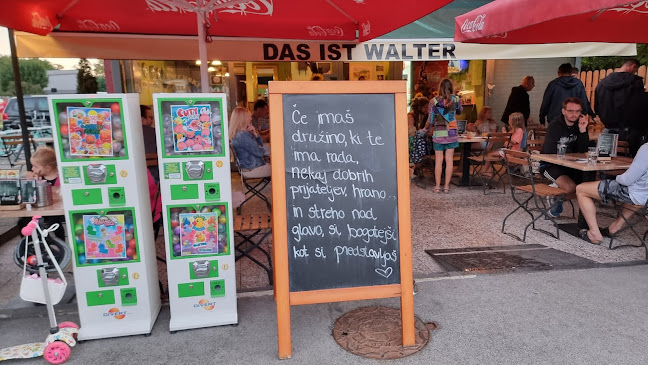 Coca-Cola
Coca-Cola
Coca-Cola
DAS IST WALTER
Če imaš
družino, ki te
ima rada,
nekaj dobrih
prijateljev, hrano..
in streho nad
glavo, si bogatejši
kot si predstavljaš